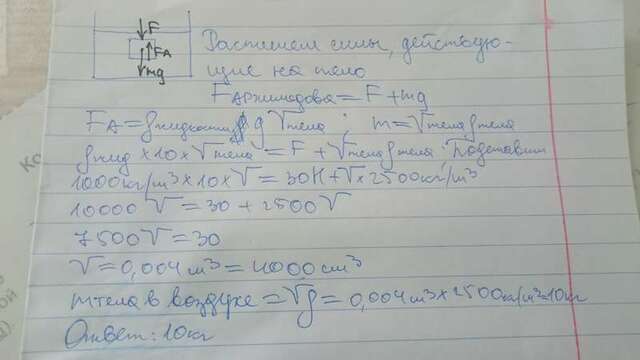 F
FA
mg
Распишем силы, действую-
щие на тело
FАрхимедова = F + mg
FA = ρжидкости g Vтела ; m = Vтела ρтела
ρжид × 10 × Vтела = F + Vтела ρтела. Подставим
1000 кг/m³ × 10 × V = 30H + V × 2500 кг/m³
10000 V = 30 + 2500 V
7500 V = 30
V = 0,004 m³ = 4000 cm³
mтела в воздухе = Vρ = 0,004 m³ × 2500 кг/m³ = 10 кг
Ответ: 10 кг